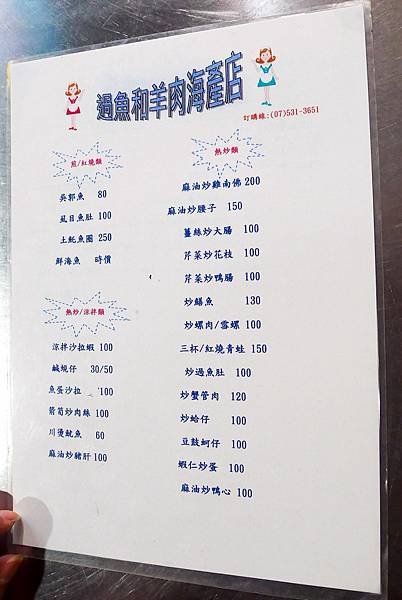 過魚和羊肉海產店
訂購線:(07)531-3651
煎/紅燒類
吳郭魚 80
虱目魚肚 100
土魠魚圈 250
鮮海魚 時價
熱炒/涼拌類
涼拌沙拉蝦 100
鹹蜆仔 30/50
魚蛋沙拉 100
箭筍炒肉絲 100
川燙魷魚 60
麻油炒豬肝 100
熱炒類
麻油炒雞南佛 200
麻油炒腰子 150
薑絲炒大腸 100
芹菜炒花枝 100
芹菜炒鴨腸 100
炒鱔魚 130
炒螺肉/雪螺 100
三杯/紅燒青蛙 150
炒過魚肚 100
炒蟹管肉 120
炒蛤仔 100
豆鼓蚵仔 100
蝦仁炒蛋 100
麻油炒鴨心 100